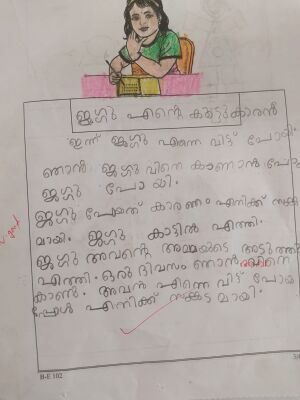 ജഗ്ഗു എന്റെ കൂട്ടുകാരൻ
ഇന്ന് ജഗ്ഗു എന്നെ വിട്ട് പോയി
ഞാൻ ജഗ്ഗു വിനെ കാണാൻ
ജഗ്ഗു പോ യി.
ജഗ്ഗു പോയത് കാരണം എനിക്ക്
മായി. ജഗ്ഗു കാട്ടിൽ എത്തി.
ജഗ്ഗു അവന്റെ അമ്മയുടെ അടുത്ത്
എത്തി. ഒരു ദിവസം ഞാൻ
കാണും. അവൻ എന്നെ വിട്ട് പോയ
പ്പോൾ എനിക്ക് സങ്കട മായി.
B-E 102